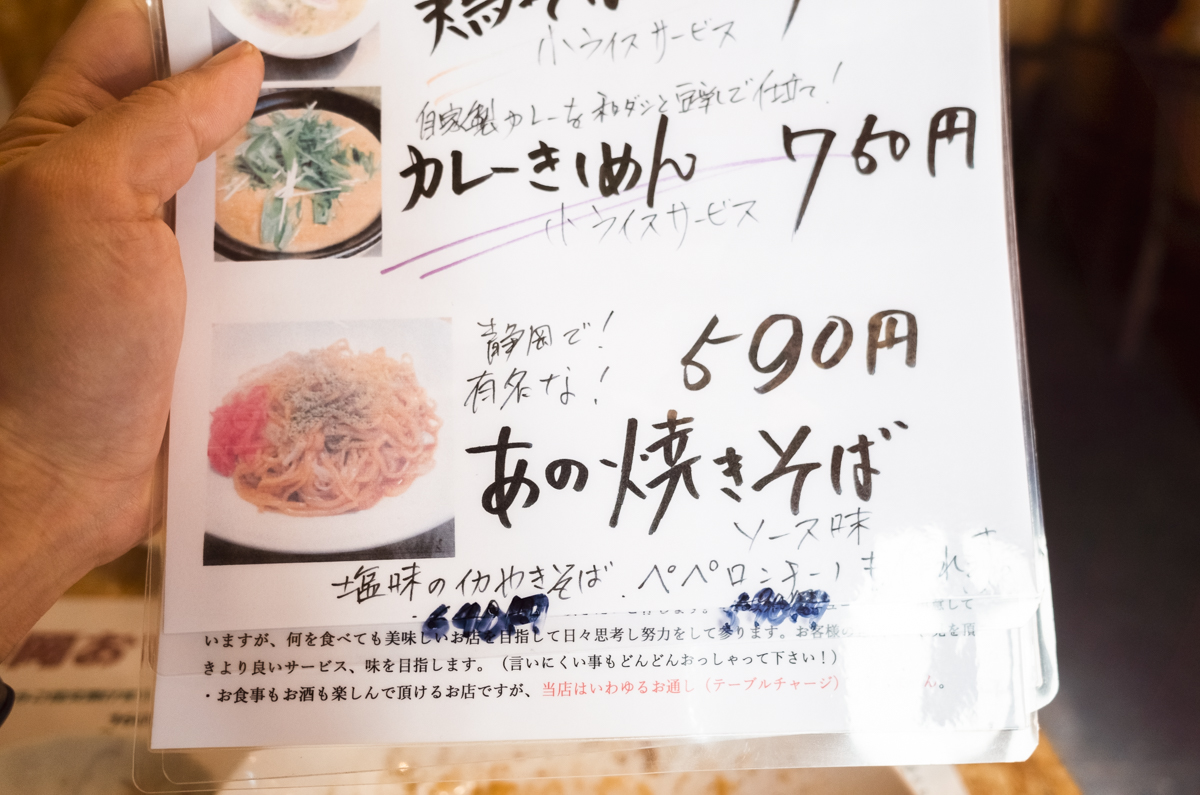 小ライスサービス
自家製カレーを和ダシと豆乳で仕立て!
カレーきしめん 750円
小ライスサービス
静岡で!
有名な!
590円
あの焼きそば
ソース味
塩味のイカやきそば、ペペロンチーノ
いますが、何を食べても美味しいお店を目指して日々思考し努力をして参ります。お客様の
きより良いサービス、味を目指します。(言いにくい事もどんどんおっしゃって下さい!)
・お食事もお酒も楽しんで頂けるお店ですが、当店はいわゆるお通し(テーブルチャージ)